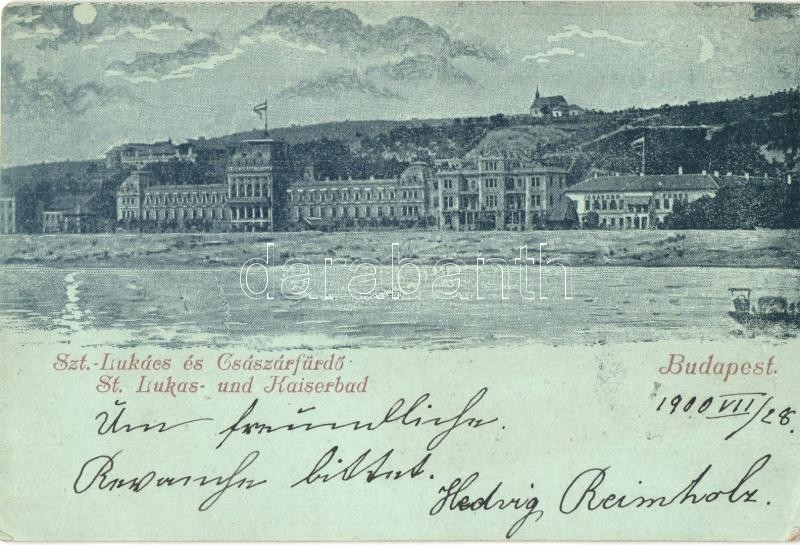 darabanth
Szt.-Lukács és Császárfürdő
St. Lukas- und Kaiserbad
Budapest.
1900 VII/28.
Um freundliche
Revanche bittet.
Hedvig Reimholz.